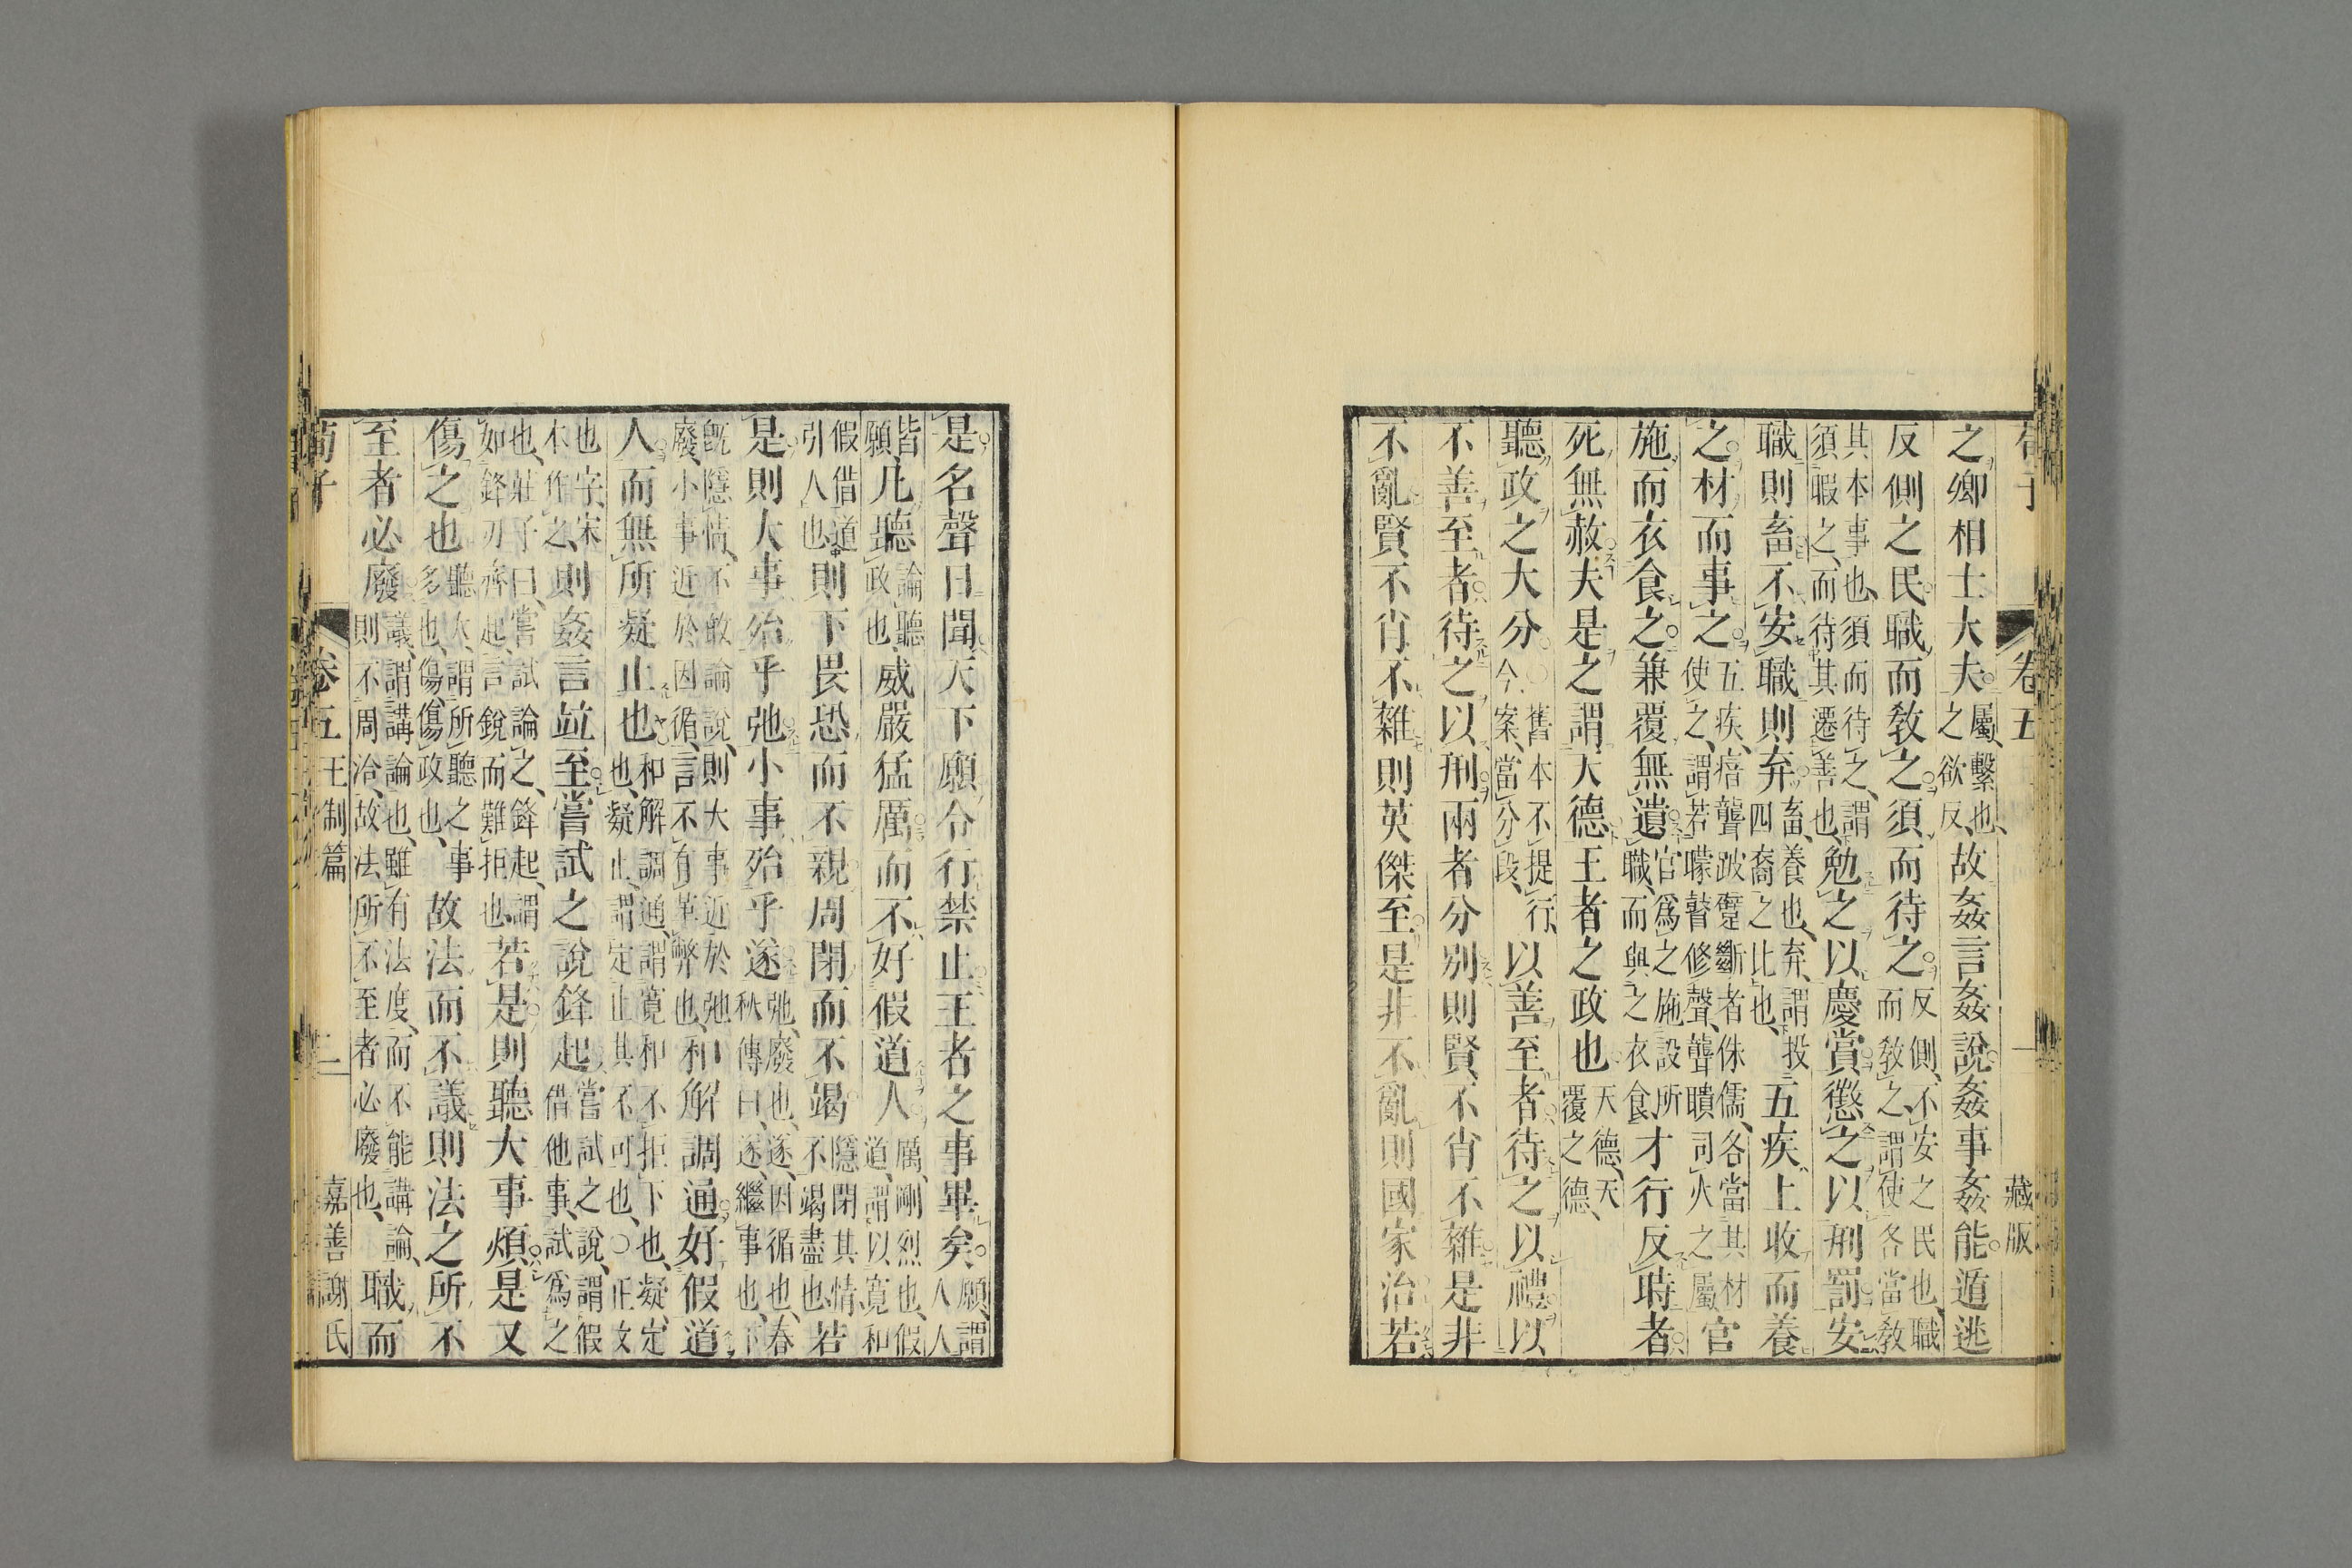 荀子 卷五 一 藏版
之卿相士大夫屬、繫也、之欲反、故姦言姦說姦事姦能遁逃
反側之民職而敎之須而待之反側、不安之民也、職而敎之、謂使各當敎
其本事也、須而待之、謂須暇之、而待其遷善也、勉之以慶賞懲之以刑罰安
職則畜不安職則弃畜、養也、弃、謂投四裔之比也、五疾上收而養
之材而事之五疾、瘖聾跛躄斷者侏儒、各當其材使之、謂若矇瞽修聲、聾聵司火之屬官
施而衣食之兼覆無遺官爲之施設所職、而與之衣食、才行反時者
死無赦夫是之謂天德王者之政也天德、天覆之德、
聽政之大分〇舊本不提行、今案、當分段、以善至者待之以禮以
不善至者待之以刑兩者分別則賢不肖不雜是非
不亂賢不肖不雜則英傑至是非不亂則國家治若
是名聲日聞天下願令行禁止王者之事畢矣願、謂人人
皆願、凡聽論聽政也、威嚴猛厲而不好假道人厲、剛烈也、假道、謂以寬和
假借道引人也則下畏恐而不親周閉而不竭隱閉其情、不竭盡也、若
是則大事殆乎弛小事殆乎遂弛、廢也、遂、因循也、春秋傳曰、遂、繼事也、下
旣隱情、不敢論說、則大事近於弛廢、小事近於因循、言不有革弊也、和解調通好假道
人而無所疑止也和解調通、謂寬和不拒下也、疑、定也、疑止、謂定止其不可也、〇正文
也字、宋本作之、則姦言竝至嘗試之說鋒起嘗試之說、謂假借他事、試爲之
也、莊子曰、嘗試論之、鋒起、謂如鋒刃齊起、言銳而難拒也、若是則聽大事煩是又
傷之也聽大、謂所聽之事多也、傷、傷政也、故法而不議則法之所不
至者必廢議、謂講論也、雖有法度、而不能講論、則不周洽、故法所不至者必廢也、職而
荀子 卷五 王制篇 二 嘉善謝氏